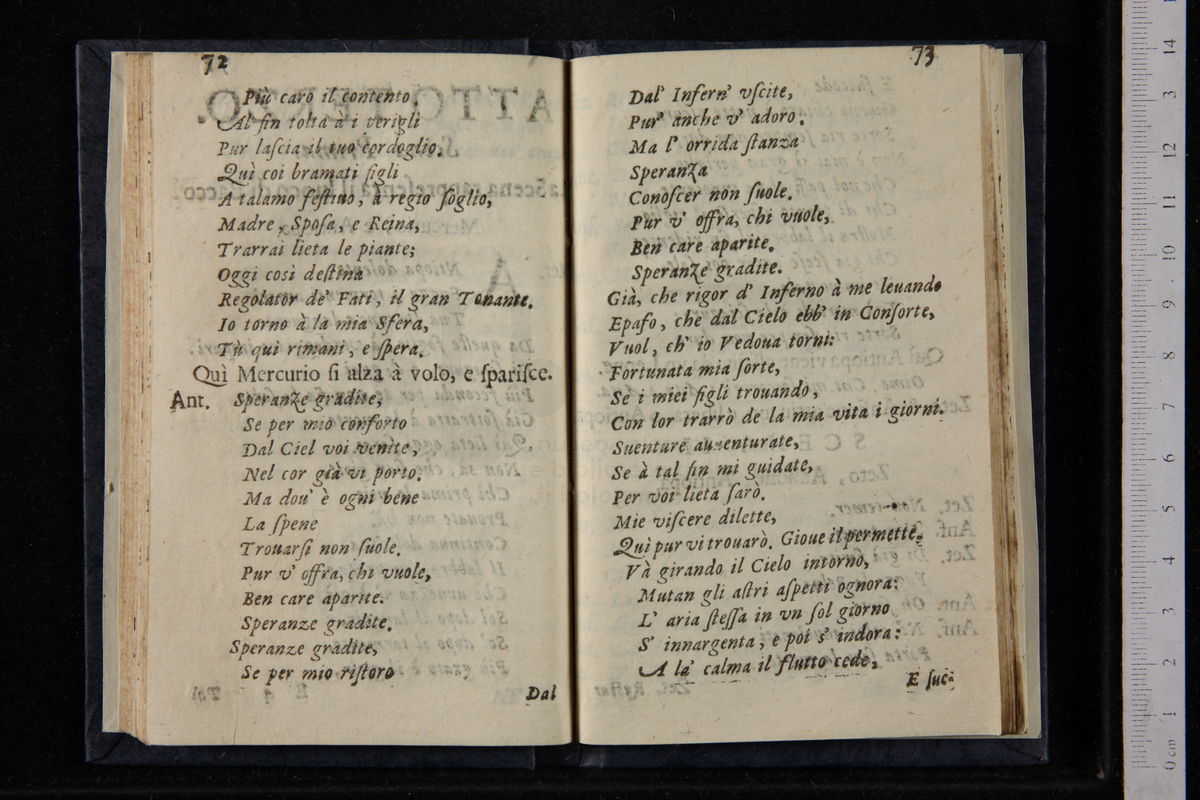 72
Più caro il contento
Al fin tolta à i perigli
Pur laſcia il tuo cordoglio.
Quì coi bramati figli
A talamo feſtiuo, à regio ſoglio,
Madre, Spoſa, e Reina,
Trarrai lieta le piante;
Oggi così deſtina
Regolator de' Fati, il gran Tonante.
Io torno à la mia Sfera,
Tù quì rimani, e ſpera.
Quì Mercurio ſi alza à volo, e ſpariſce.
Ant. Speranze gradite,
Se per mio conforto
Dal Ciel voi venite,
Nel cor già vi porto.
Ma dou' è ogni bene
La ſpene
Trouarſi non ſuole.
Pur v' offra, chi vuole,
Ben care aparite.
Speranze gradite.
Speranze gradite,
Se per mio riſtoro
Dal
73
Dal' Infern' vſcite,
Pur' anche v' adoro.
Ma l' orrida ſtanza
Speranza
Conoſcer non ſuole.
Pur v' offra, chi vuole,
Ben care aparite.
Speranze gradite.
Già, che rigor d' Inferno à me leuando
Epafo, che dal Cielo ebb' in Conſorte,
Vuol, ch' io Vedoua torni:
Fortunata mia ſorte,
Se i miei figli trouando,
Con lor trarrò de la mia vita i giorni.
Suenture auuenturate,
Se à tal fin mi guidate,
Per voi lieta ſarò.
Mie viſcere dilette,
Quì pur vi trouarò. Gioue il permette.
Và girando il Cielo intorno,
Mutan gli aſtri aſpetti ognora:
L' aria ſteſſa in vn ſol giorno
S' innargenta, e poi s' indora:
A la' calma il flutto cede,
E ſuc-